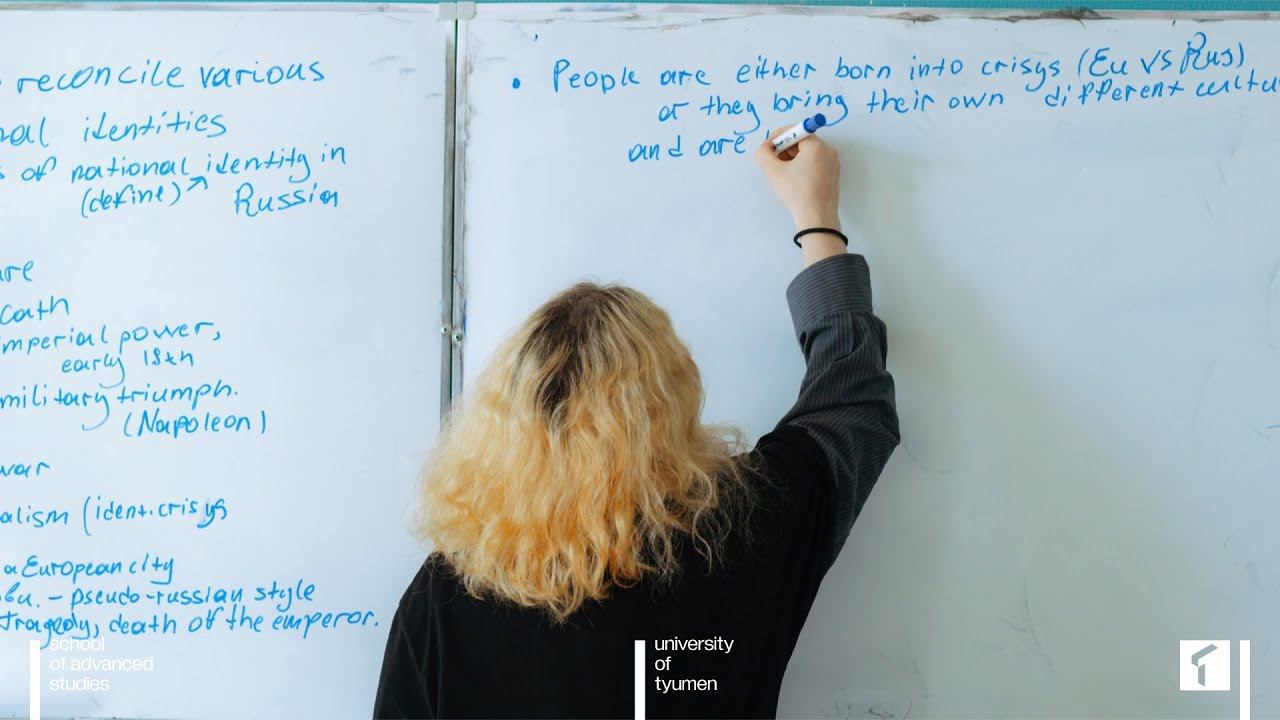 reconcile various
nal identities
s of national identity in
(define) Russia
are
cath
imperial power,
early 18th
military triumph.
(Napoleon)
war
alism (ident.crisys
a European city
- pseudo-russian style
tragedy, death of the emperor.
• People are either born into crisys (Eu vs Rus)
or they bring their own different cultu
and are
school
of advanced
studies
university
of
tyumen